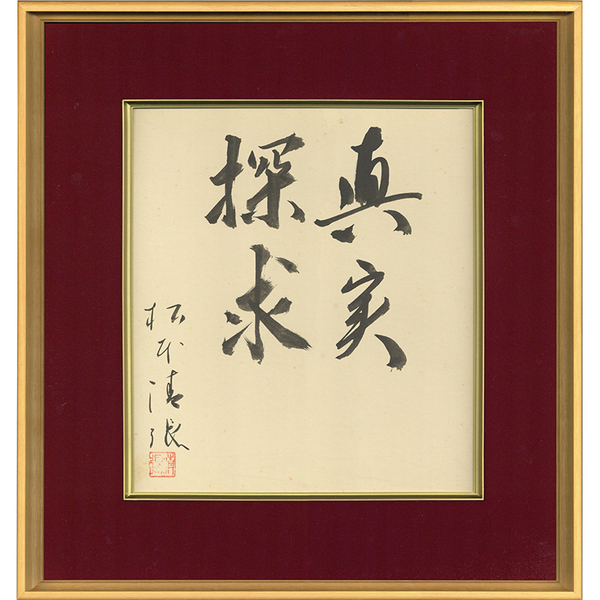 真実
探求
松本清張